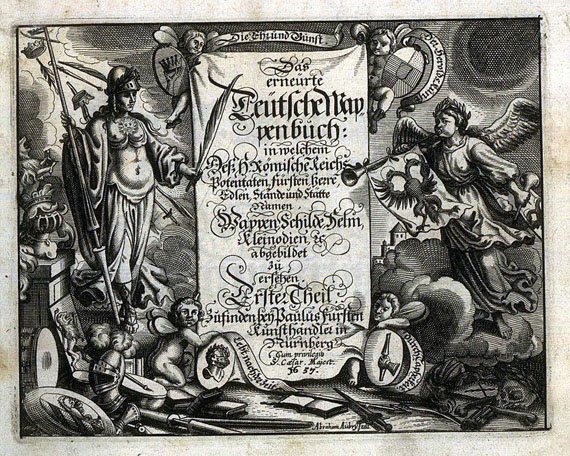 Die Ehr und Gunst
Das
erneurte
Teütsche Wap
penbuch:
in welchem
Deß H. Römische Reichs
Potentaten, fürsten, Herrē
Edlen, Stände und Stätte
Namen
Wappen, Schilde, Helm,
Kleinodien, &c
abgebildet
zu
ersehen
Erster Theil
Zufinden bey Paulus Fürsten
Kunsthandler in
Nürnberg
Cum privilegio
S. Cæsar. Majest.
1657.
Abraham Aubry fecit